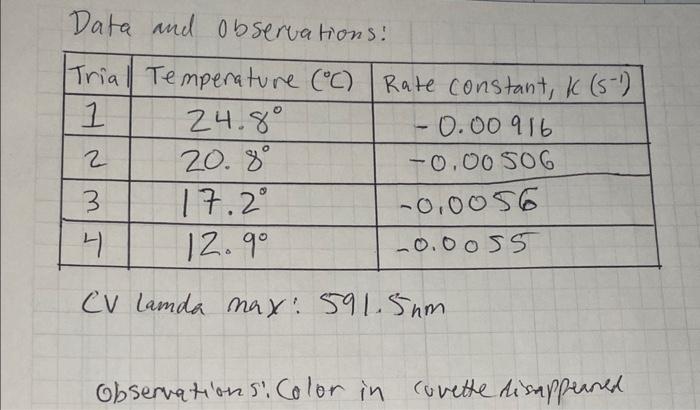 Data and observations:
Trial Temperature (°C) Rate constant, k (s⁻¹)
1 24.8° -0.00916
2 20.8° -0.00506
3 17.2° -0.0056
4 12.9° -0.0055
CV lamda max: 591.5nm
Observations: Color in cuvette disappeared